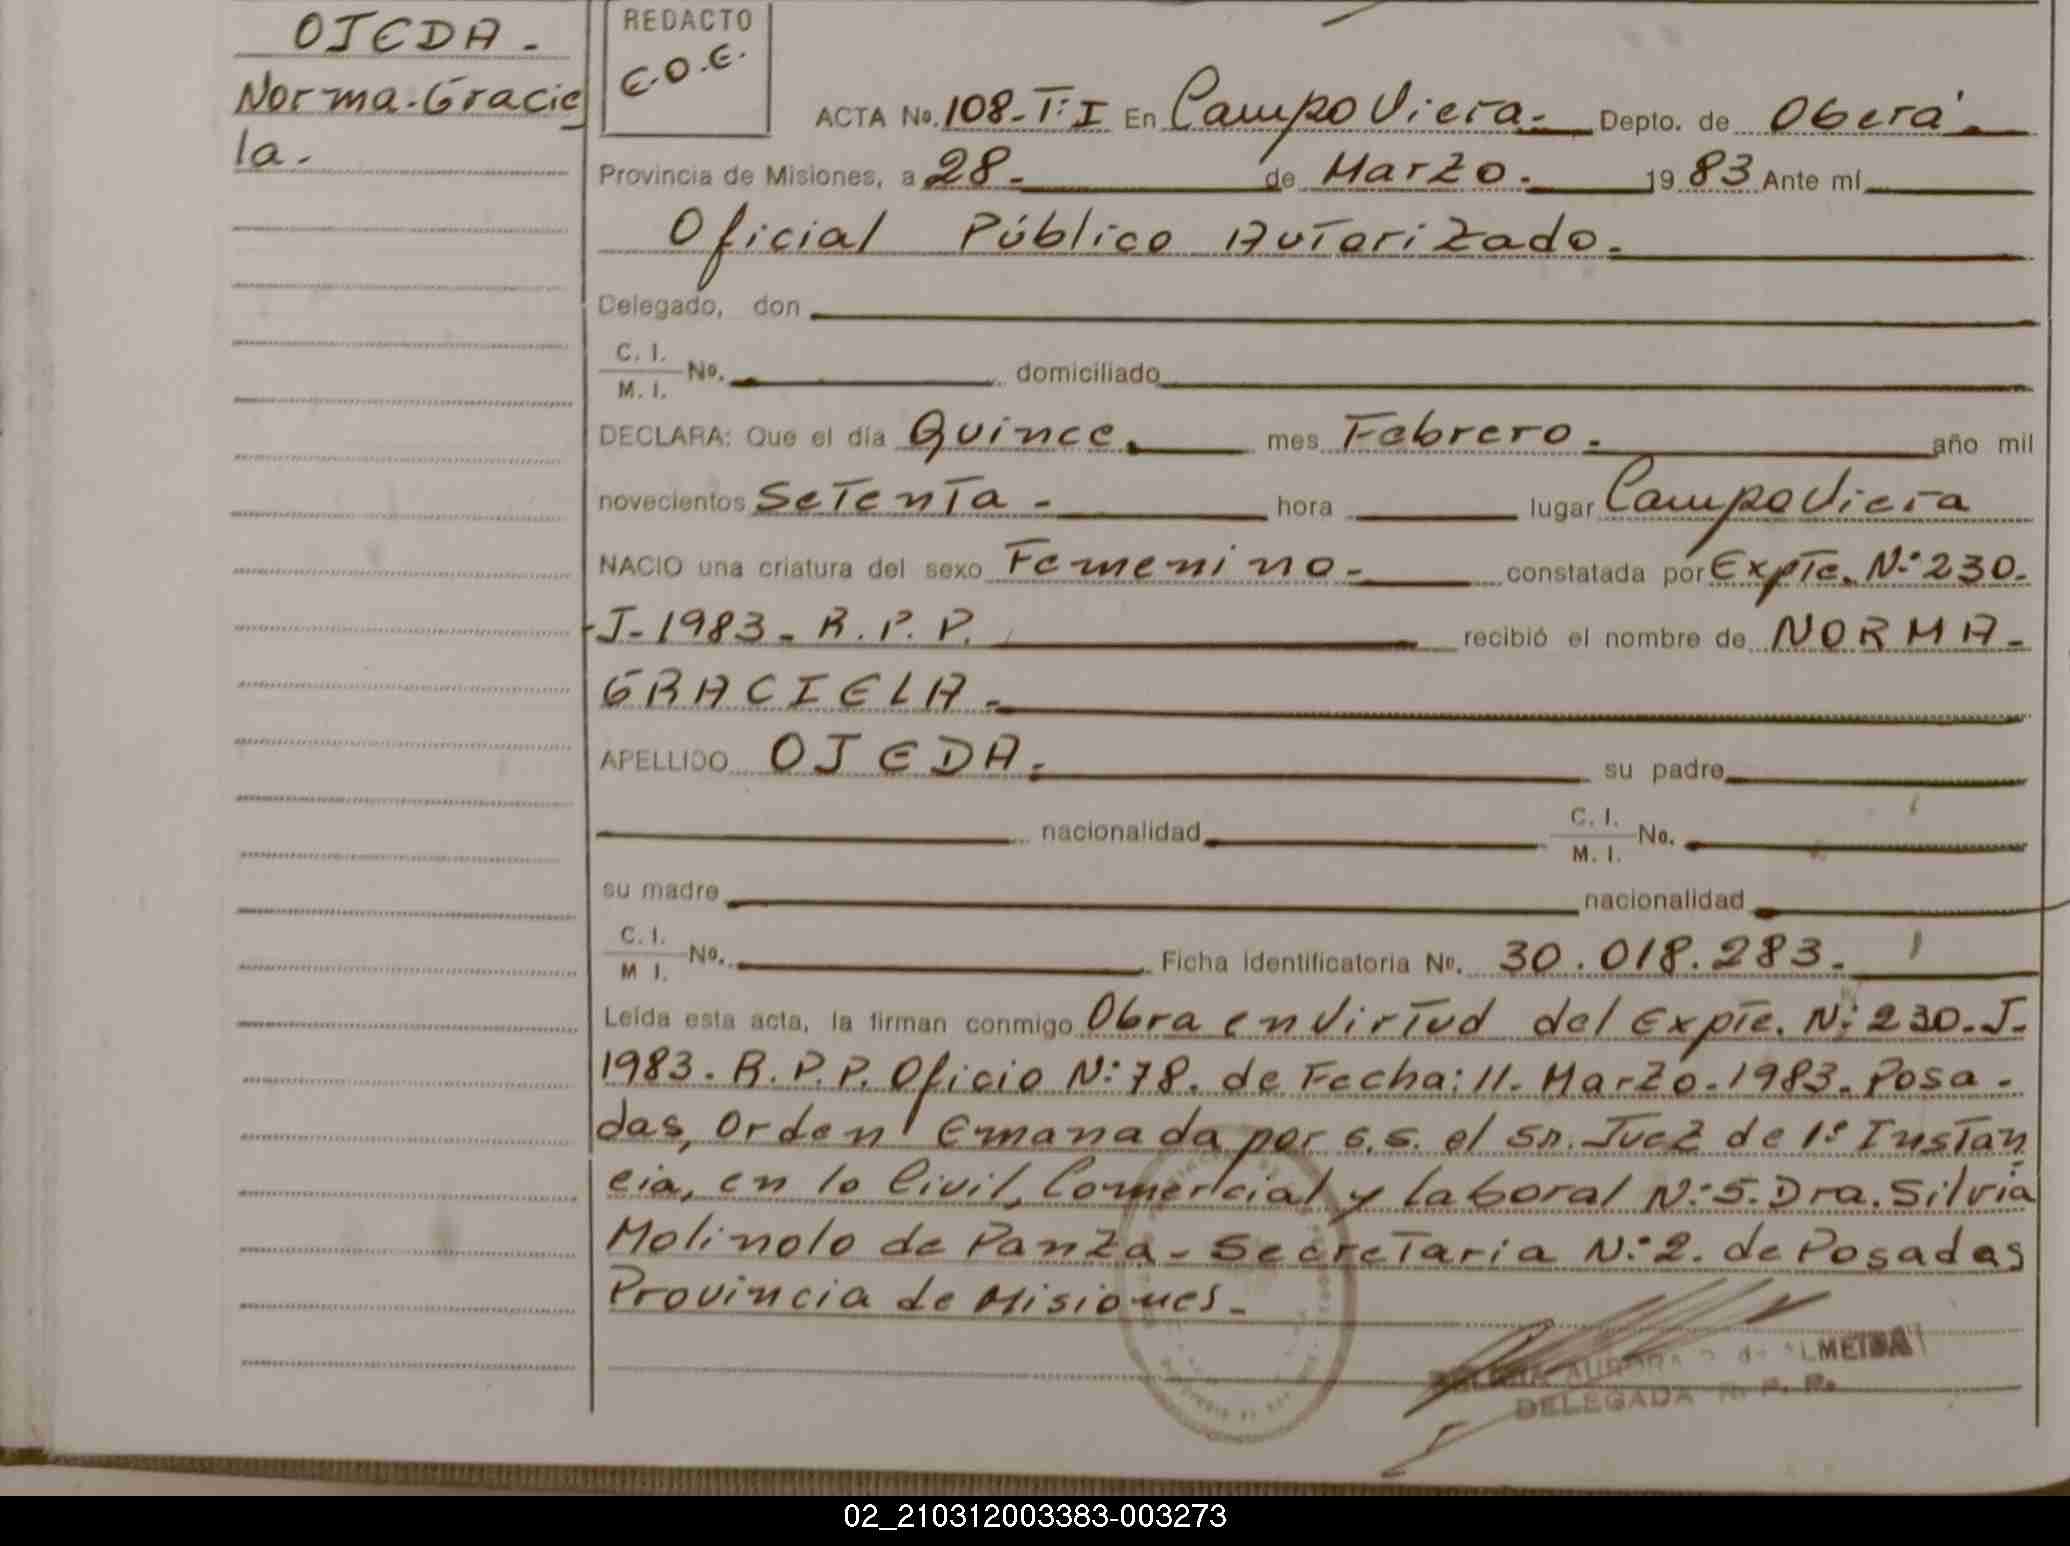 OJEDA -
Norma. Gracie
la.
REDACTO
E.O.E.
ACTA No. 108 - T: I En Campo Viera. Depto. de Oberá.
Provincia de Misiones, a 28 - de Marzo. 19 83 Ante mí
Oficial Público Autorizado.
Delegado, don
C. I.
M. I. No. domiciliado
DECLARA: Que el día Quince. mes Febrero. año mil
novecientos Setenta - hora lugar Campo Viera
NACIO una criatura del sexo Femenino. constatada por Expte. N: 230.
J- 1983 - R. P. P. recibió el nombre de NORMA -
GRACIELA -
APELLIDO OJEDA. su padre
nacionalidad C. I.
M. I. No.
su madre nacionalidad
C. I.
M I. No. Ficha identificatoria No. 30.018.283.
Leída esta acta, la firman conmigo Obra en Virtud del Expte. N: 230. J-
1983. R. P. P. Oficio N: 78. de Fecha: 11. Marzo. 1983. Posa -
das, Orden Emanada por S.S. el Sr. Juez de 1º Instan
cia, en lo Civil, Comercial y laboral N: 5. Dra. Silvia
Molinolo de Panza - Secretaria N: 2. de Posadas
Provincia de Misiones. -
de ALMEIDA
DELEGADA R. P. P.
02_210312003383-003273